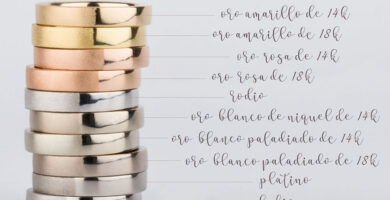 oro amarillo de 14k
oro amarillo de 18k
oro rosa de 14k
oro rosa de 18k
rodio
oro blanco de niquel de 14k
oro blanco paladiado de 14k
oro blanco paladiado de 18k
platino